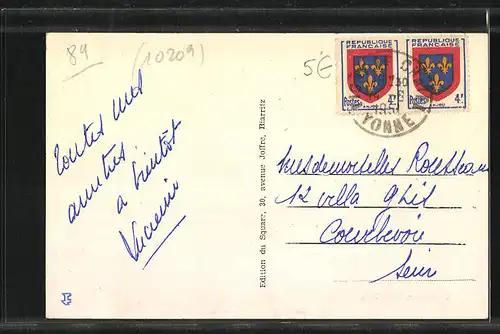 89
(10209)
5€
REPUBLIQUE FRANÇAISE
REPUBLIQUE FRANÇAISE
Postes
4F
ANJOU
Postes
4F
ANJOU
YONNE
toutes mes
amitiés
a bientôt
Edition du Square, 30, avenue Joffre, Biarritz
Mesdemoiselles Rousseau
12 villa Ghis
Courbevoie
Seine